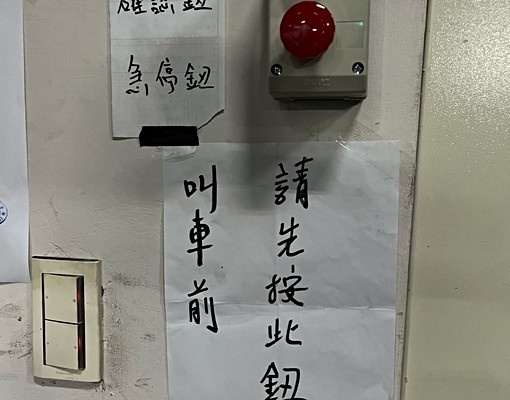 確認鈕
急停鈕
叫車前
請先按此鈕